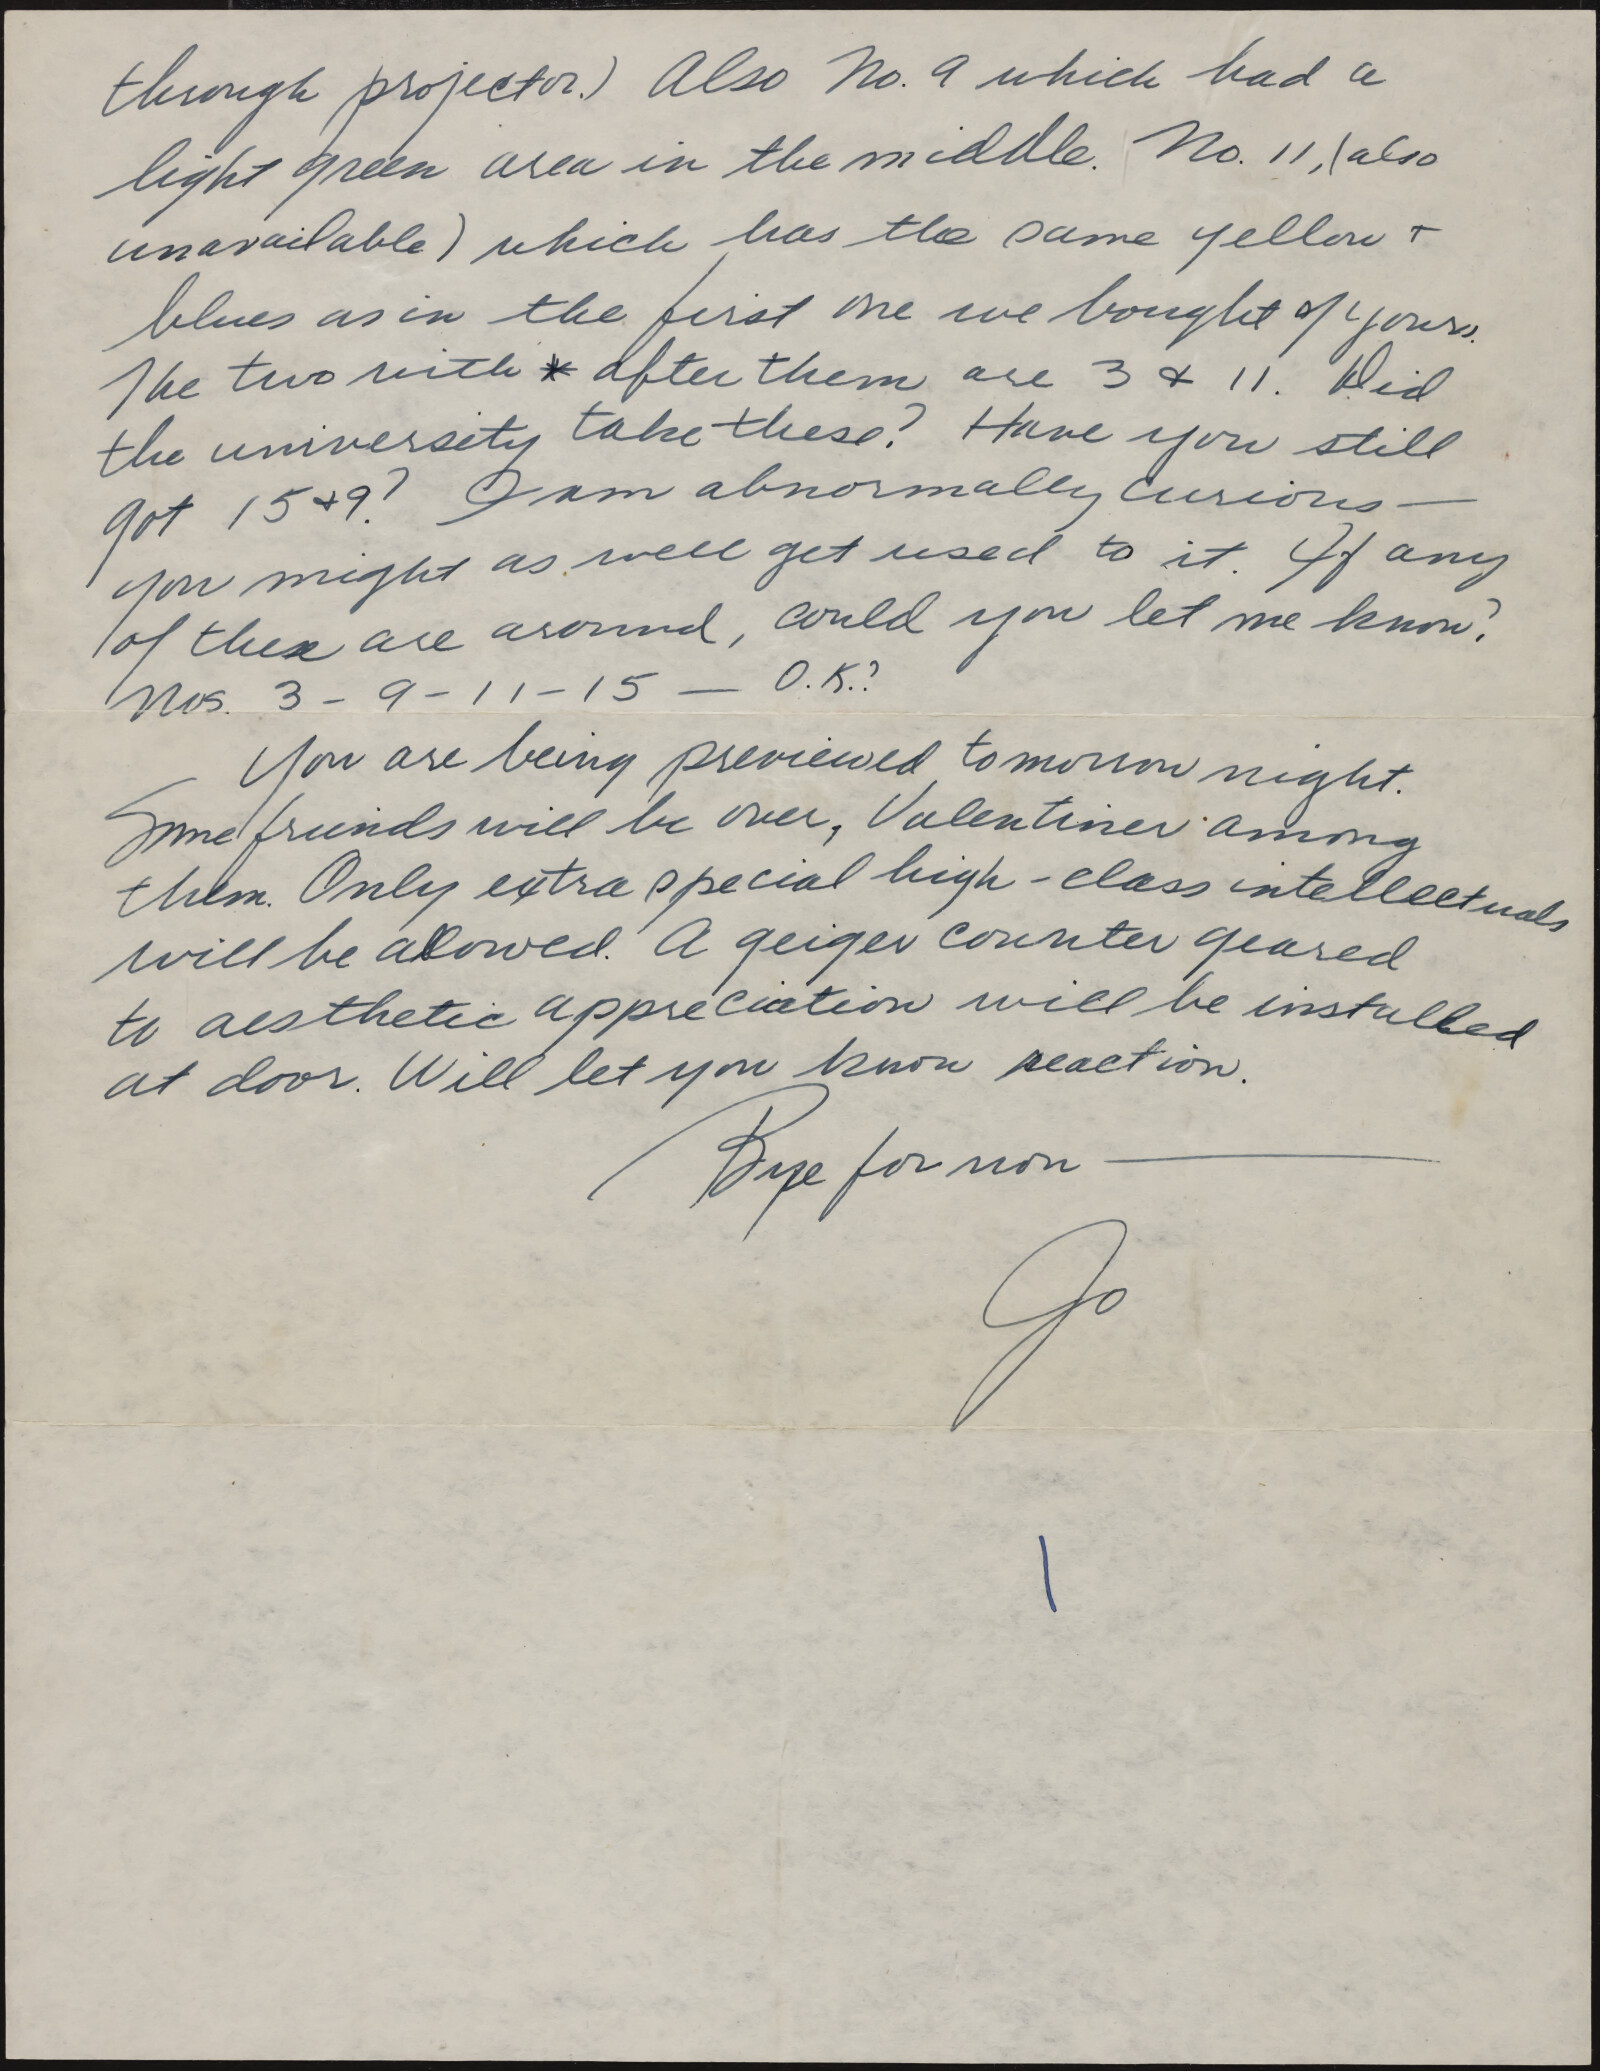 through projector.) Also No. 9 which had a
light green area in the middle. No. 11, (also
unavailable) which has the same yellow +
blues as in the first one we bought of yours.
The two with * after them are 3 & 11. Did
the university take these? Have you still
got 15 + 9? I am abnormally curious —
you might as well get used to it. If any
of these are around, could you let me know?
Nos. 3 - 9 - 11 - 15 — O.K.?
You are being previewed tomorrow night.
Some friends will be over, Valentiner among
them. Only extra special high-class intellectuals
will be allowed. A geiger counter geared
to aesthetic appreciation will be installed
at door. Will let you know reaction.
Bye for now —
Jo